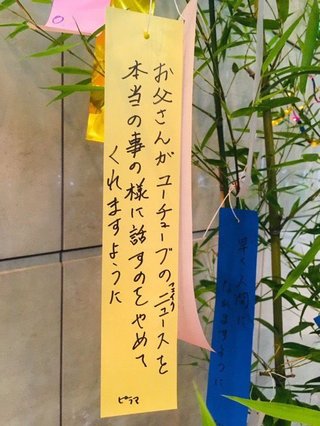 お父さんがユーチューブのフェイクニュースを
本当の事の様に話すのをやめて
くれますように
ピラマ
早く人間に
なれますように